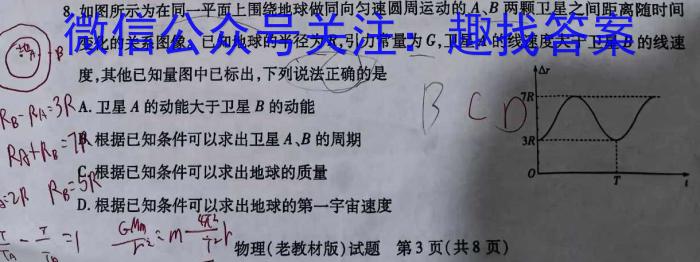 8. 如图所示为在同一平面上围绕地球做同向匀速圆周运动的 A、B 两颗卫星之间距离随时间
变化的关系图像,已知地球的半径为R,引力常量为 G,卫星 A 的线速度大于卫星 B 的线速
度,其他已知量图中已标出,下列说法正确的是
微信公众号关注:趣找答案
A. 卫星 A 的动能大于卫星 B 的动能
B. 根据已知条件可以求出卫星 A、B 的周期
C. 根据已知条件可以求出地球的质量
D. 根据已知条件可以求出地球的第一宇宙速度
Δr
7R
3R
O
T
t
B C D
A
B
R_B-R_A=3R
R_A+R_B=7R
=2R R_B=5R
T/T_A - T/T_B =1
GMm/r² = m 4π²/T² r
物理(老教材版)试题 第 3 页(共 8 页)